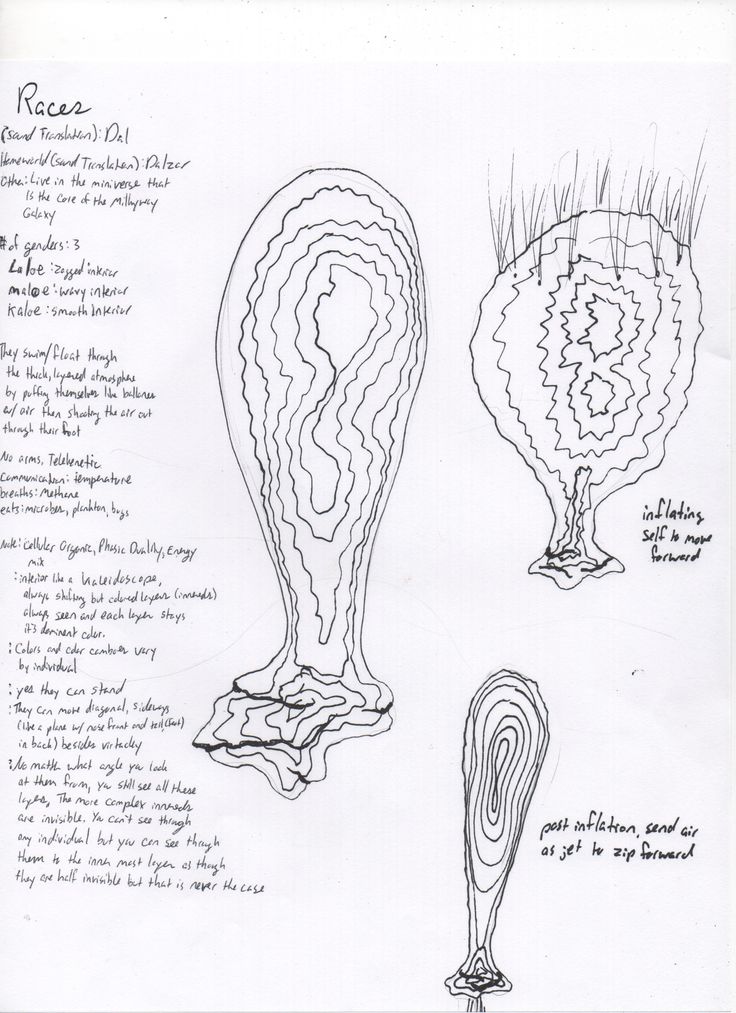 Races
(sound Translation): Dal
Homeworld (sound Translation): Dalzar
Other: Live in the miniverse that
is the core of the Milkyway
Galaxy
# of genders: 3
Laloe: zagged interior
maloe: wavy interior
Kaloe: smooth Interior
They swim/float through
the thick, layered atmosphere
by puffing themselves like ballones
w/ air then shooting the air out
through their foot
No arms, Telekenetic
Communication: temperature
breaths: Methane
eats: microbes, plankton, bugs
Note: Cellular Organic, Phasic Duality, Energy
mix
: interior like a kaleidoscope,
always shifting but colored layers (innereds)
always seen and each layer stays
it's dominent color.
: Colors and color comboes vary
by individual
: yes they can stand
: They can move diagonal, sideways
(like a plane w/ nose front and tail (foot)
in back) besides virtacly
: No matter what angle you look
at them from, you still see all these
layers, The more complex innereds
are invisible. You can't see through
any individual but you can see though
them to the inner most layer as though
they are half invisible but that is never the case
inflating
self to move
forward
post inflation, send air
as jet to zip forward